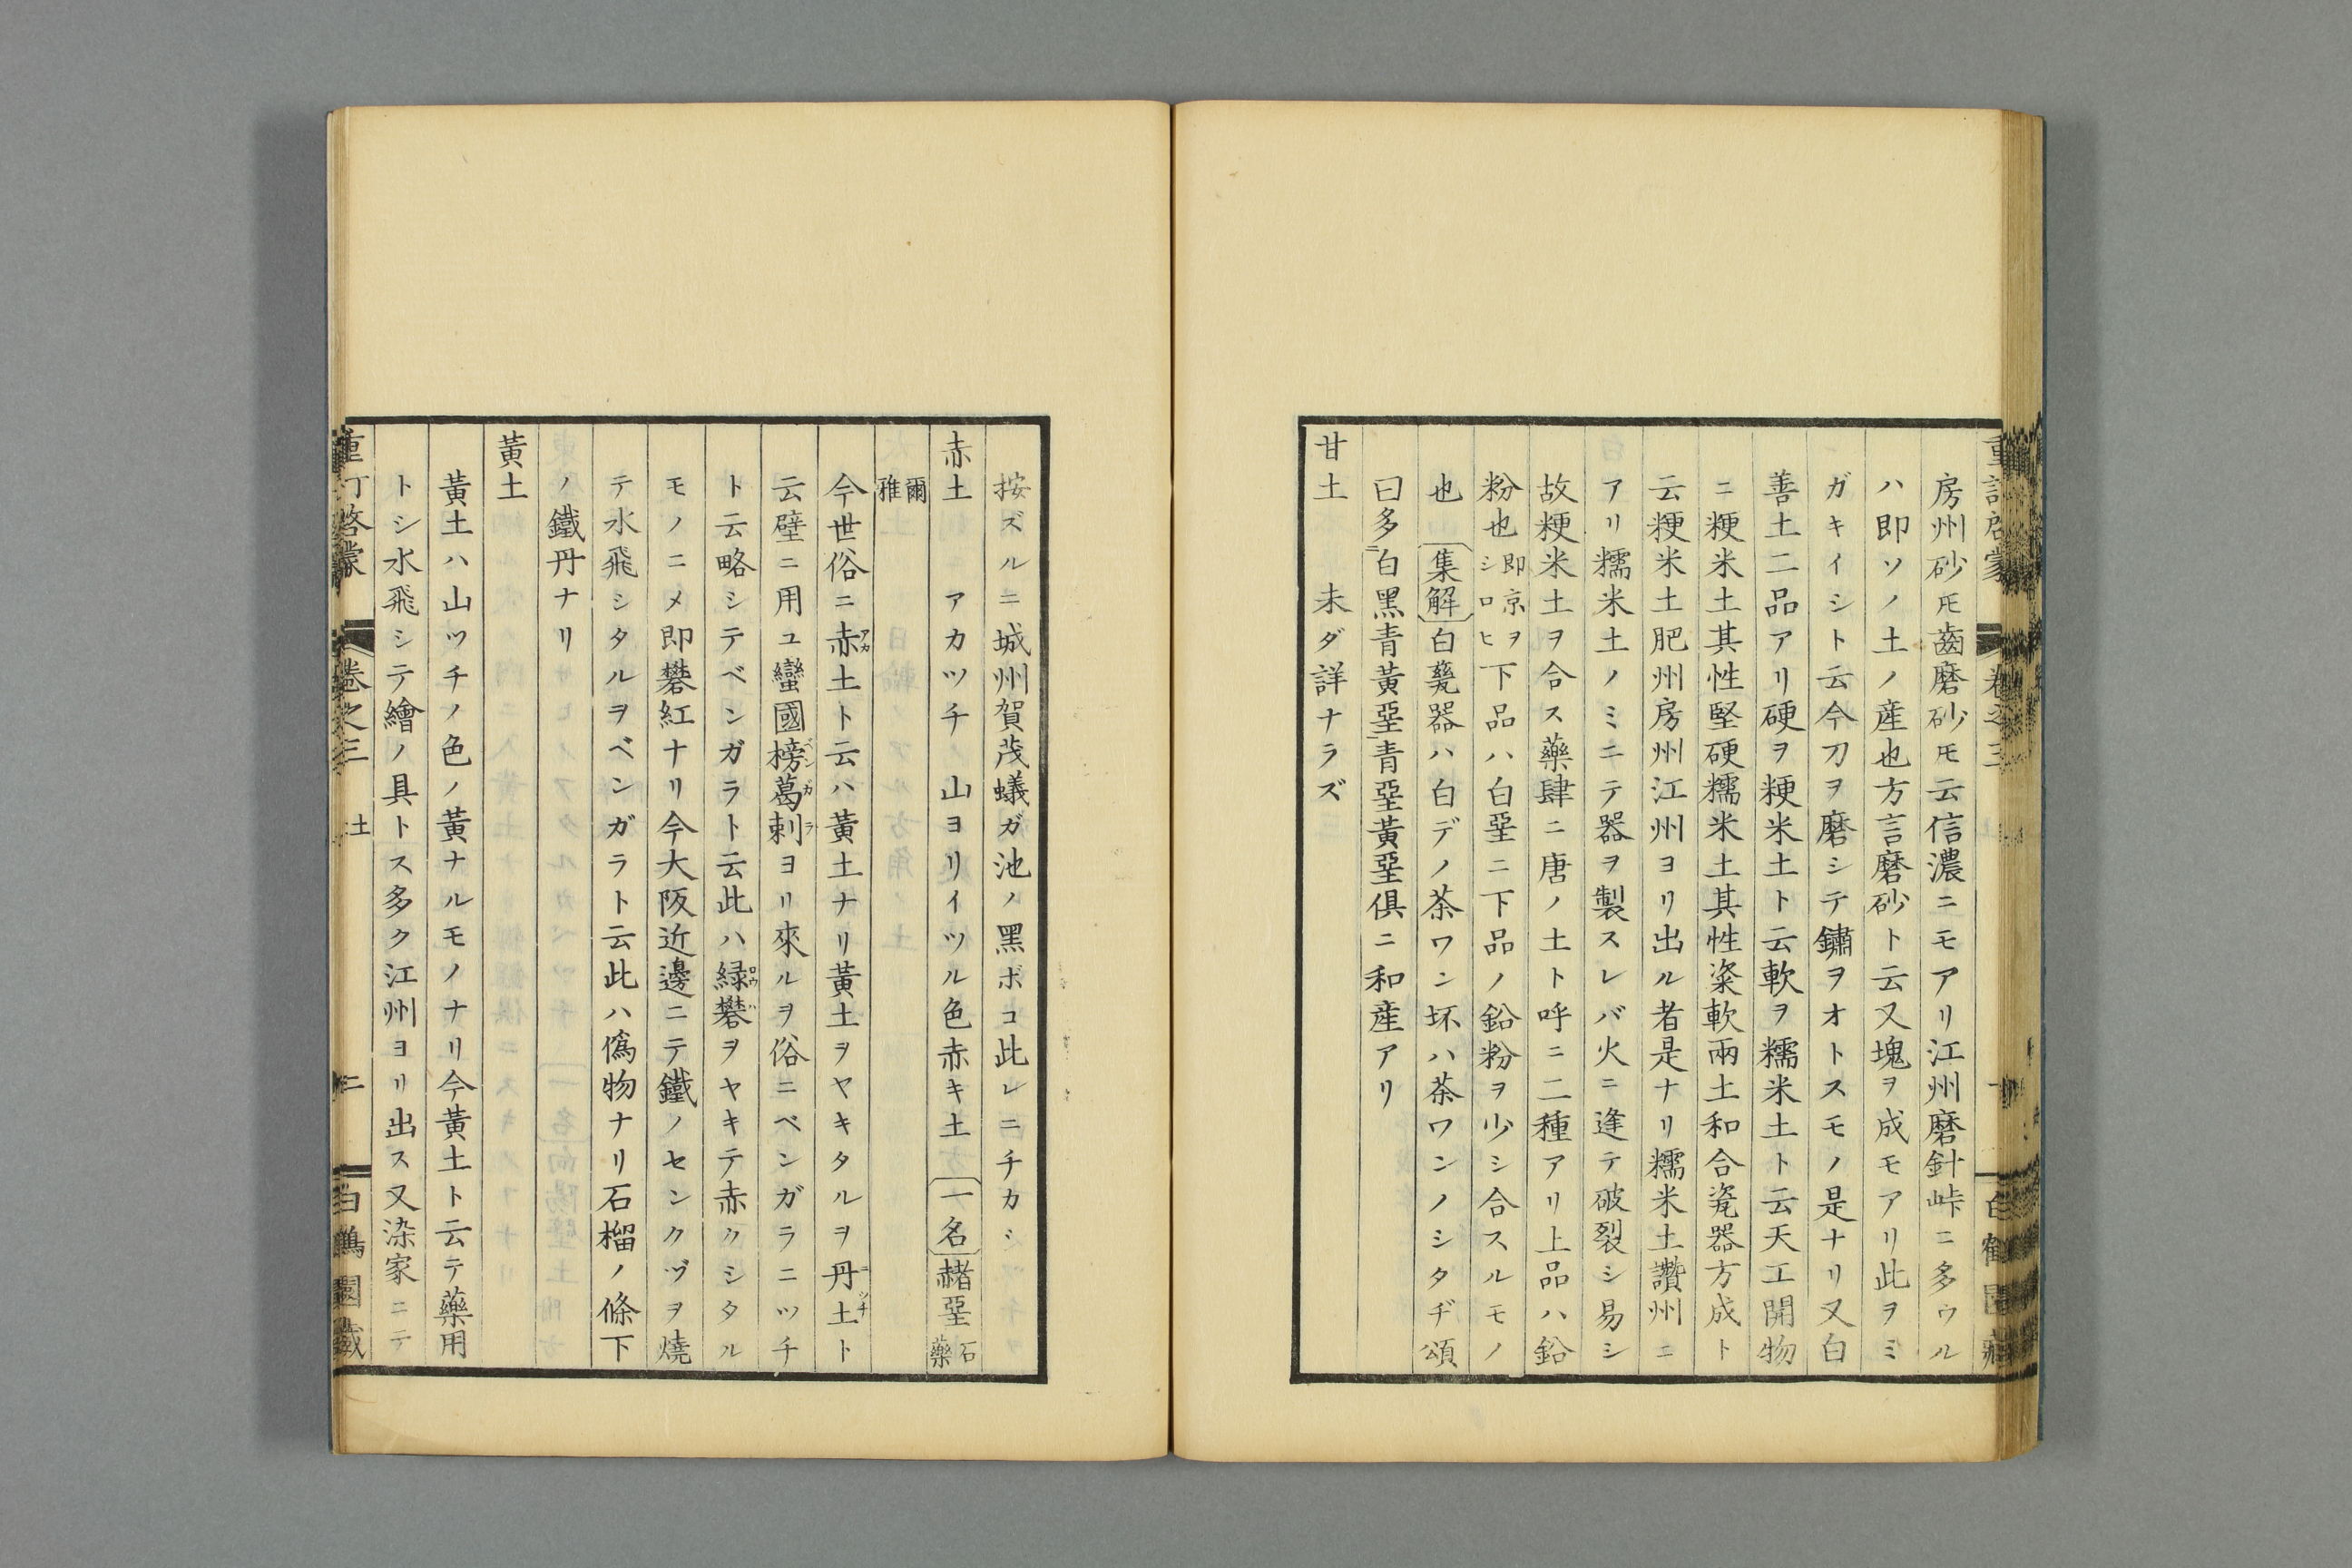 房州砂𪜈齒磨砂𪜈云信濃ニモアリ江州磨針峠ニ多ウル
ハ即ソノ土ノ産也方言磨砂ト云又塊ヲ成モアリ此ヲミ
ガキイシト云今刀ヲ磨シテ鏽ヲオトスモノ是ナリ又白
善土二品アリ硬ヲ粳米土ト云軟ヲ糯米土ト云天工開物
ニ粳米土其性堅硬糯米土其性粢軟兩土和合瓷器方成ト
云粳米土肥州房州江州ヨリ出ル者是ナリ糯米土讚州ニ
アリ糯米土ノミニテ器ヲ製スレバ火ニ逢テ破裂シ易シ
故粳米土ヲ合ス藥肆ニ唐ノ土ト呼ニ二種アリ上品ハ鉛
粉也即京ヲシロヒ下品ハ白堊ニ下品ノ鉛粉ヲ少シ合スルモノ
也 集解 白甆器ハ白デノ茶ワン坏ハ茶ワンノシタヂ頌
曰多白黑青黃堊青堊黃堊俱ニ和産アリ
甘土 未ダ詳ナラズ
按ズルニ城州賀茂蟻ガ池ノ黑ボコ此レニチカシ
赤土 アカツチ 山ヨリイツル色赤キ土 一名 赭堊石藥
爾雅
今世俗ニ赤アカ土ト云ハ黃土ナリ黃土ヲヤキタルヲ丹ニ土ツチト
云壁ニ用ユ蠻國榜ベン葛ガ剌ラヨリ來ルヲ俗ニベンガラニツチ
ト云略シテベンガラト云此ハ緑ロウ礬ハヲヤキテ赤クシタル
モノニメ即礬紅ナリ今大阪近邊ニテ鐵ノセンクヅヲ燒
テ水飛シタルヲベンガラト云此ハ僞物ナリ石榴ノ條下
ノ鐵丹ナリ
黃土
黃土ハ山ツチノ色ノ黃ナルモノナリ今黃土ト云テ藥用
トシ水飛シテ繪ノ具トス多ク江州ヨリ出ス又染家ニテ
重訂啓蒙 卷之三 土 二 白鶴園藏